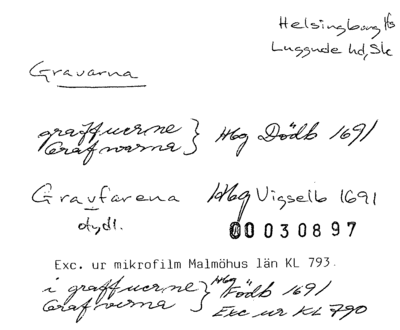 Helsingborg lfs
Luggude hd, Sk
Gravarna
graffuerne } Hbg Dödb 1691
Grafwarna
Gravfarena Hbg Vigselb 1691
tydl.
0030897
Exc. ur mikrofilm Malmöhus län KL 793.
i graffuerne } Hbg Födb 1691
Grafwerna Exc ur KL 790